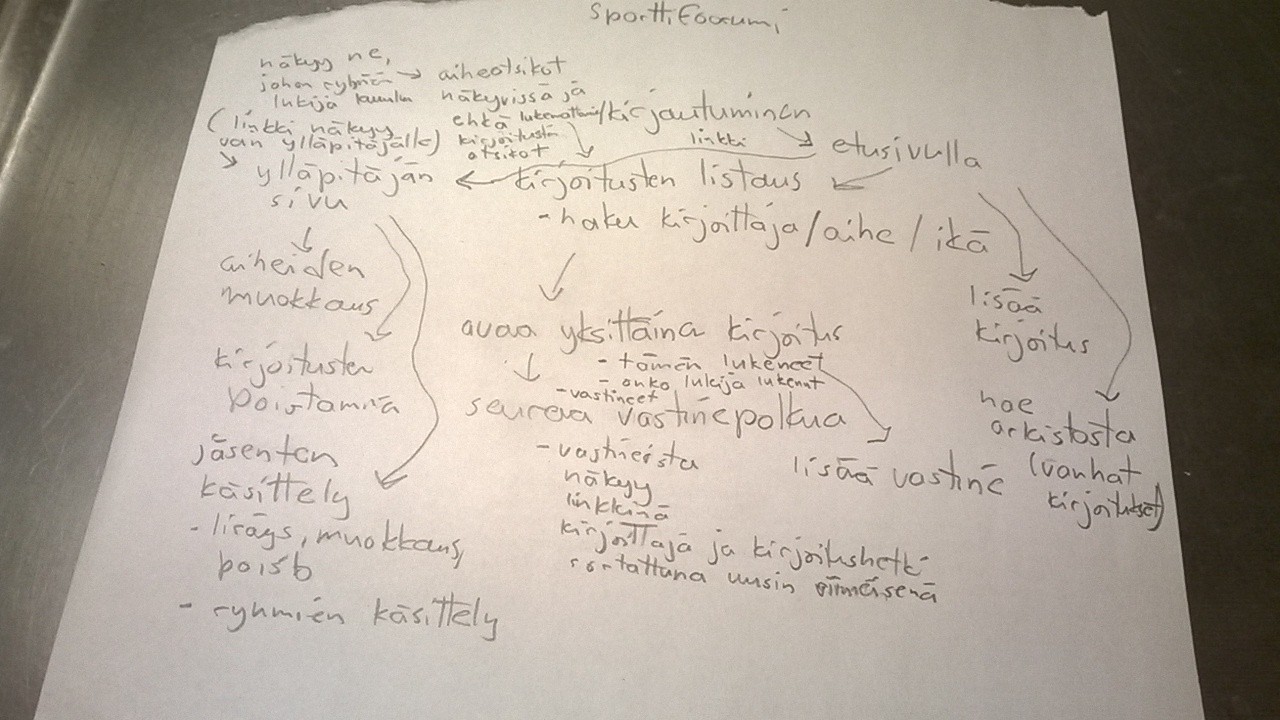 Sporttifoorumi
näkyy ne,
johon ryhmään → aiheotsikot
lukija kuuluu näkyvissä ja
ehkä lukemattomien/kirjautuminen
kirjoitusten
otsikot
(linkki näkyy
van ylläpitäjälle)
linkki
etusivulla
ylläpitäjän
sivu
kirjoitusten listaus
- haku kirjoittaja/aihe/ikä
aiheiden
muokkaus
kirjoitusten
poistaminen
jäsenten
käsittely
- lisäys, muokkaus,
poisto
- ryhmien käsittely
avaa yksittäinen kirjoitus
- tämän lukeneet
- onko lukija lukenut
- vastineet
seuraava vastinepolkua
- vastineista
näkyy
linkkinä
kirjoittaja ja kirjoitushetki
sortattuna uusin viimeisenä
lisää vastine
lisää
kirjoitus
hae
arkistosta
(vanhat
kirjoitukset)